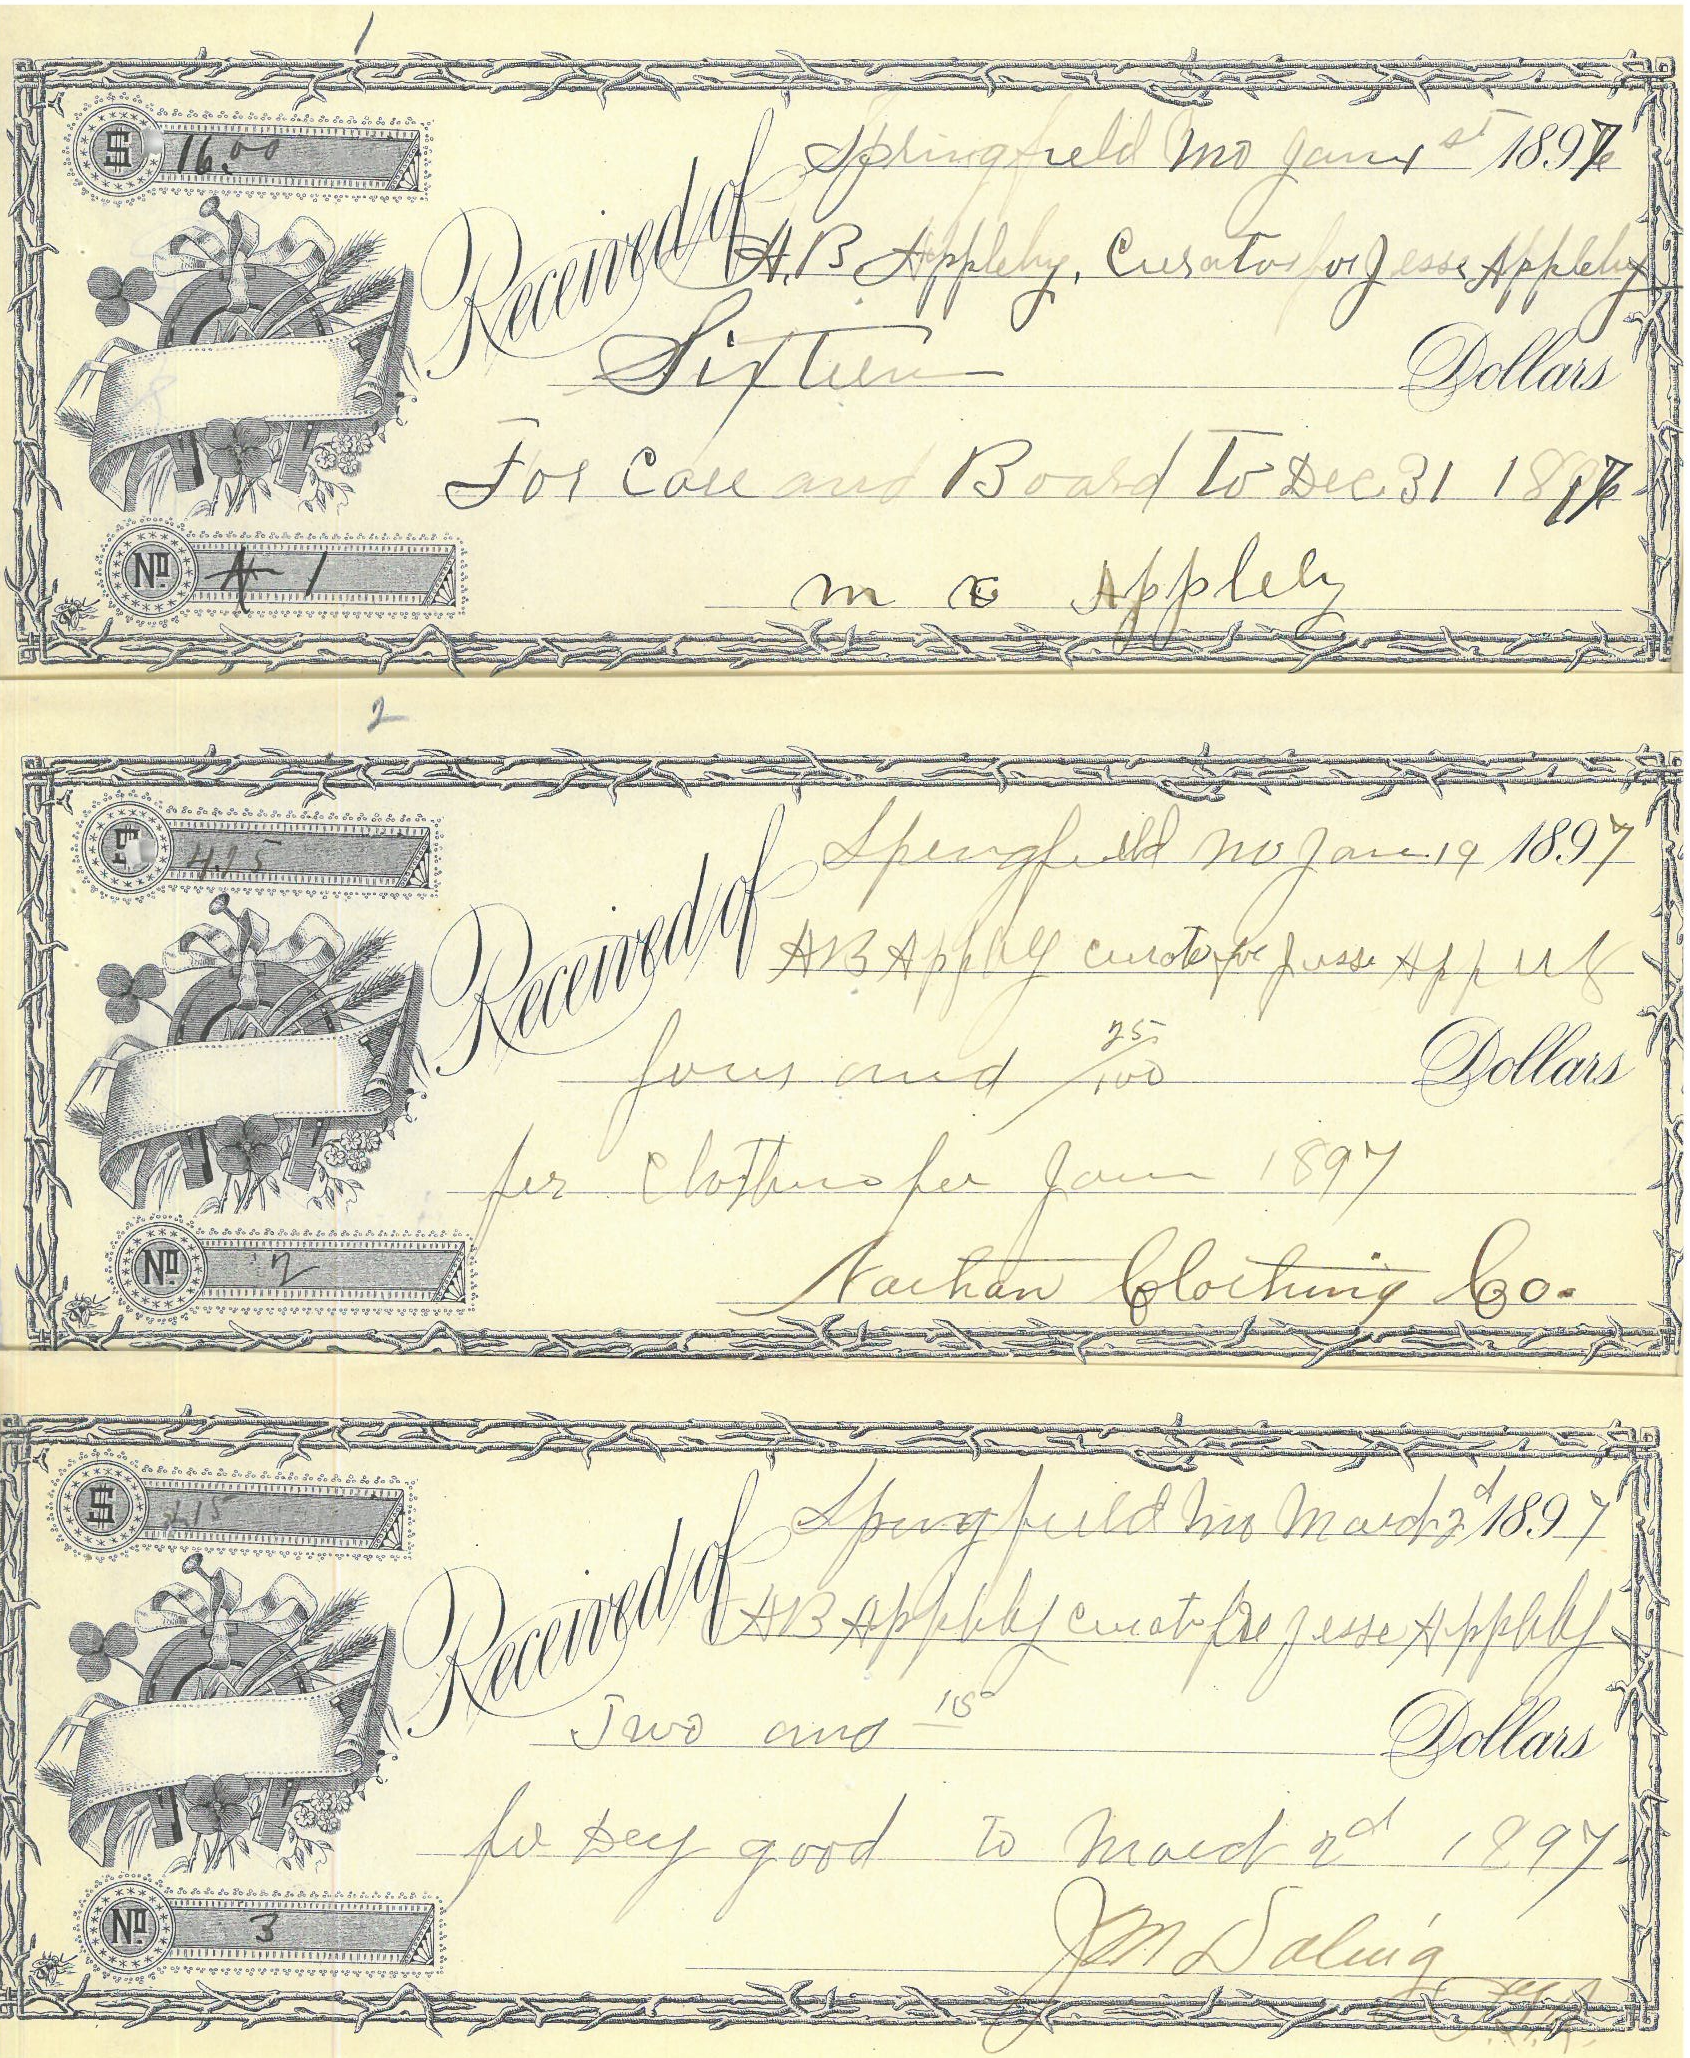 1
$ 16.00
Springfield Mo Jany 1st 1897
Received of A.B Appleby, Curator for Jesse Appleby
Sixteen Dollars
For Care and Board to Dec. 31 1897
No 1
m E Appleby
2
$ 4.15
Springfield Mo Jan. 19 1897
Received of AB Appleby Curator for Jesse Appleby
four and 25/100 Dollars
for Clothing for Jan 1897
No 2
Nathan Clothing Co.
$ 2.15
Springfield Mo March 2d 1897
Received of AB Appleby Curator for Jesse Appleby
Two and 15 Dollars
for Dry good to March 2d 1897
No 3
J M Doling